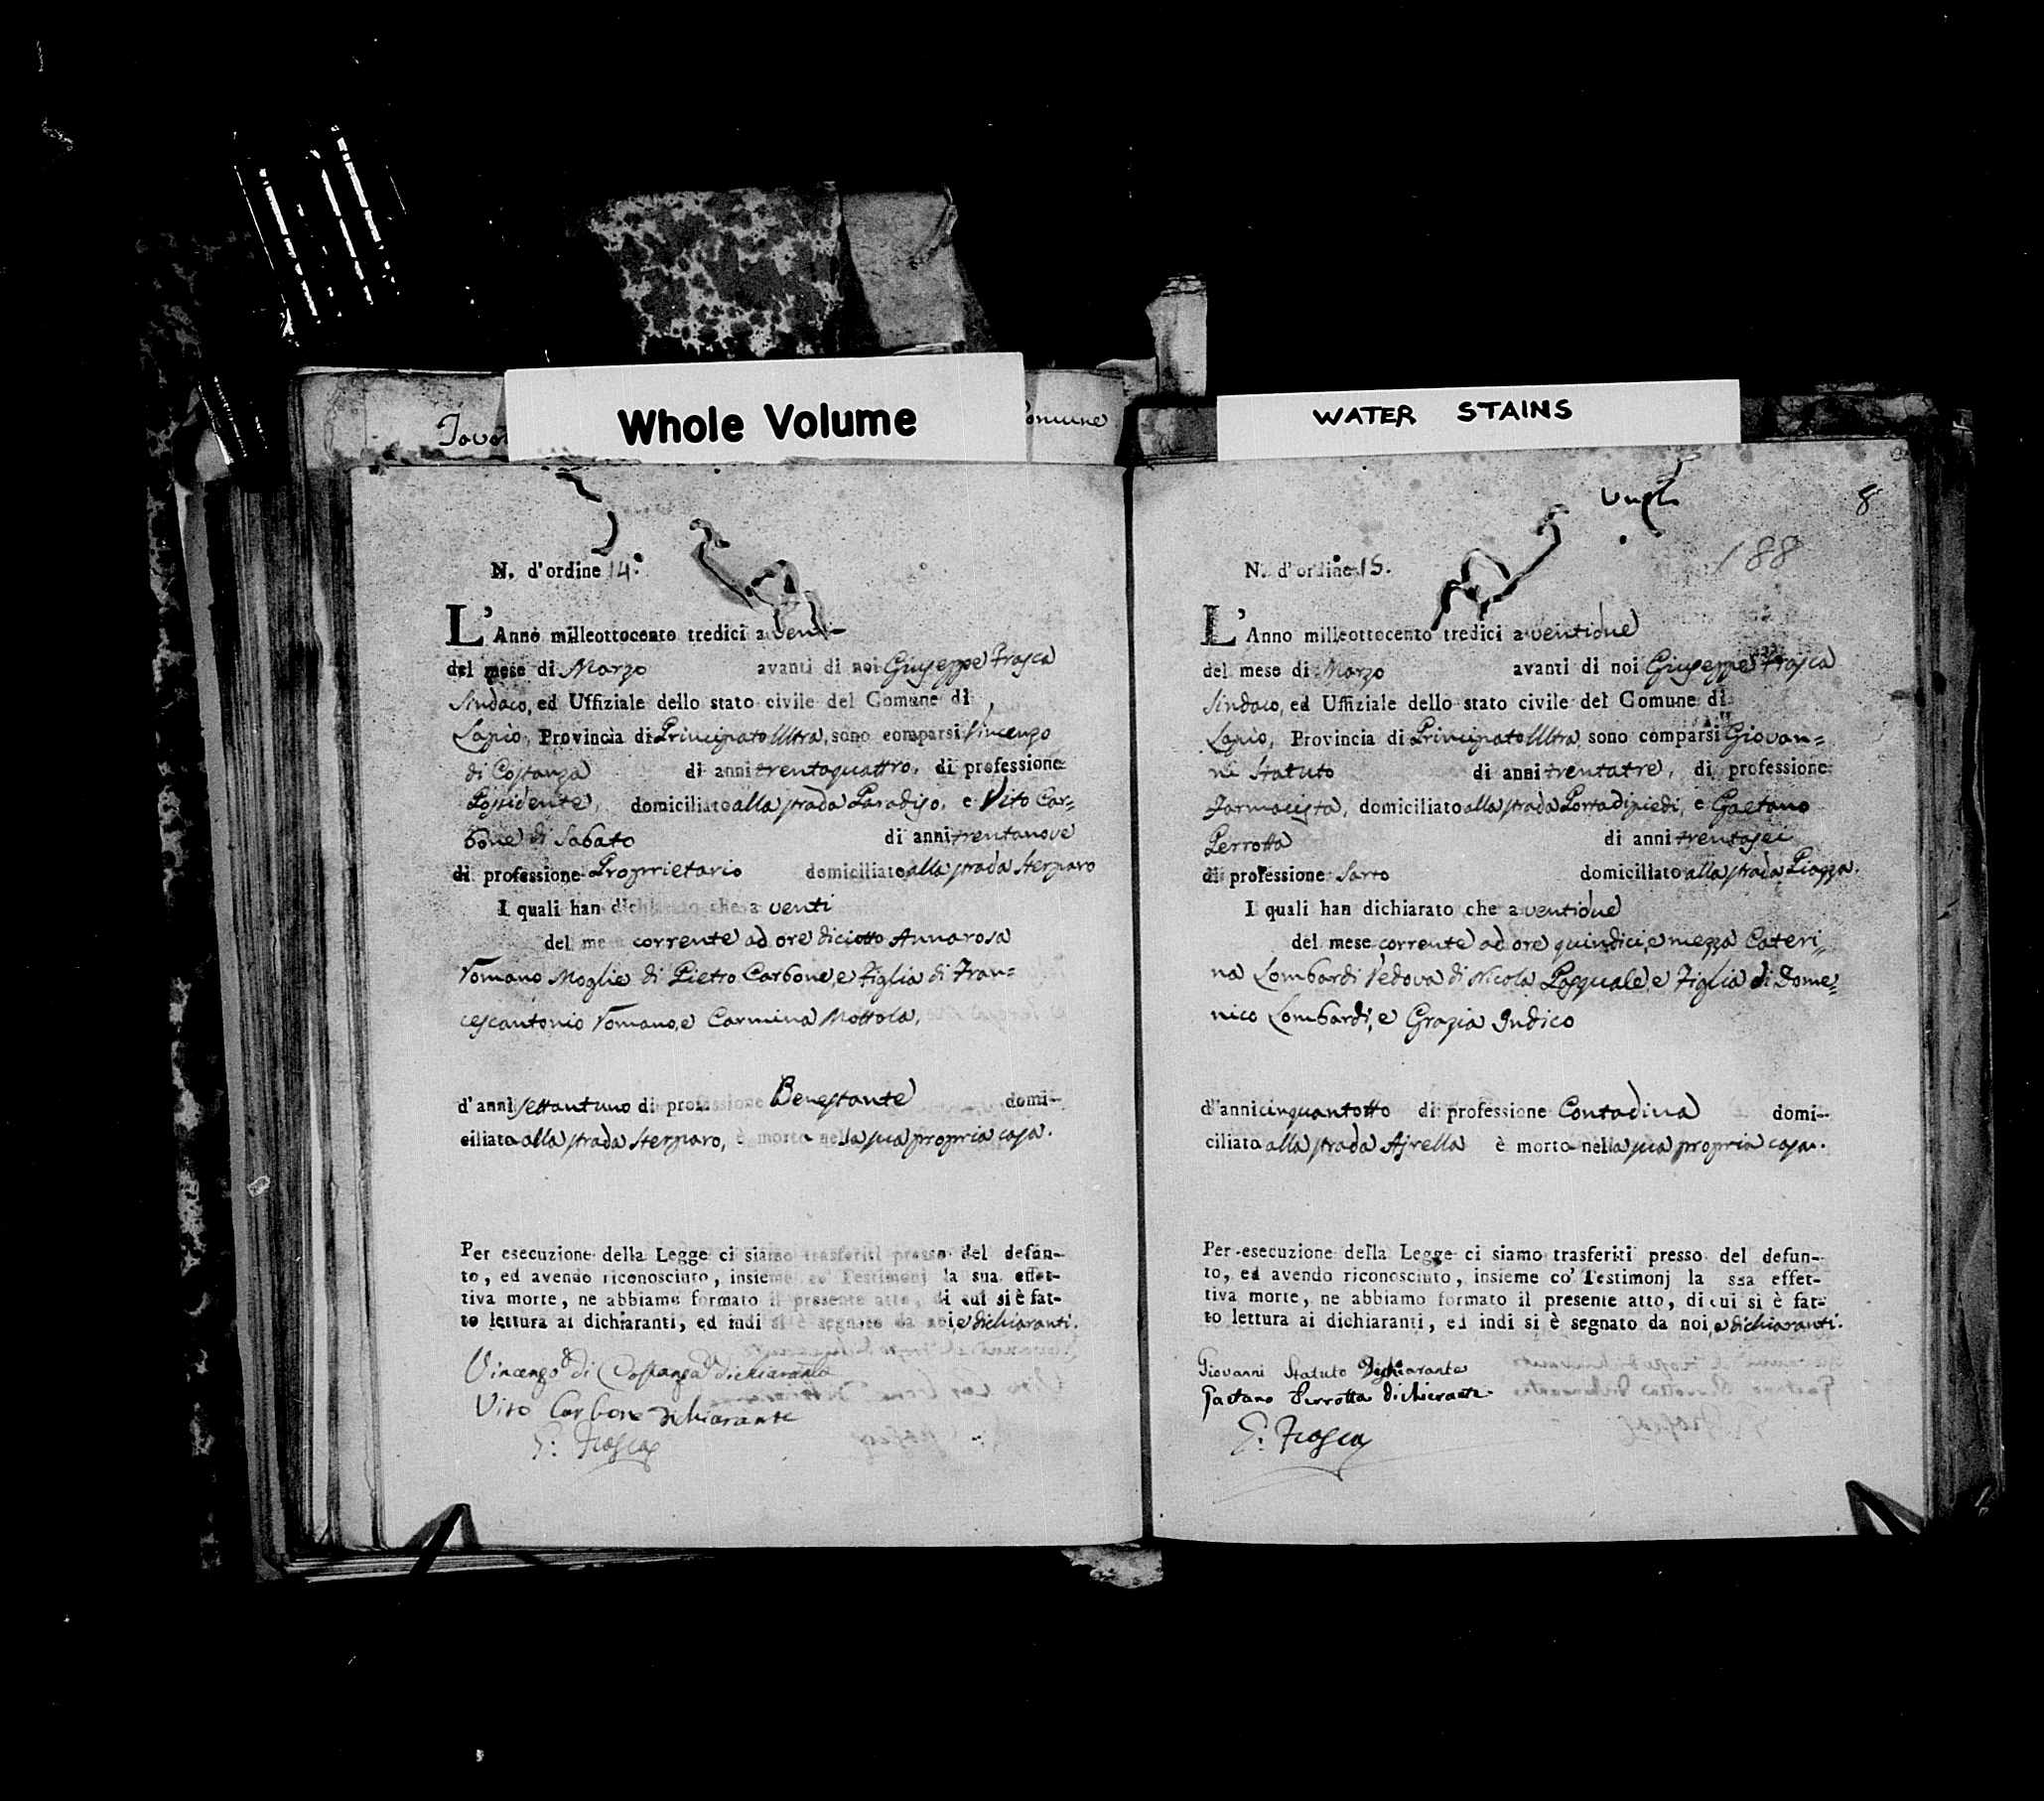 Whole Volume
WATER STAINS
omune
N. d'ordine 14.
L'Anno milleottocento tredici a venti
del mese di Marzo avanti di noi Giuseppe Frasca
Sindaco, ed Uffiziale dello stato civile del Comune di
Lapio, Provincia di Principato Ultra, sono comparsi Vincenzo
di Costanza di anni trentaquattro, di professione
Possidente, domiciliato alla strada Paradiso, e Vito Car=
bone di Sabato di anni trentanove
di professione Proprietario domiciliato alla strada Sterparo
I quali han dichiarato che a venti
del mese corrente ad ore diciotto Annarosa
Romano Moglie di Pietro Carbone, e Figlia di Fran=
cescantonio Romano, e Carmina Mottola,
d'anni settantuno di professione Benestante domi-
ciliato alla strada Sterparo, è morto nella sua propria casa.
Per esecuzione della Legge ci siamo trasferiti presso del defun-
to, ed avendo riconosciuto, insieme co' Testimonj la sua effet-
tiva morte, ne abbiamo formato il presente atto, di cui si è fat-
to lettura ai dichiaranti, ed indi si è segnato da noi, e dichiaranti.
Vincenzo di Costanza dichiarante
Vito Carbone dichiarante
G: Frasca
8
188
N. d'ordine 15.
L'Anno milleottocento tredici a ventidue
del mese di Marzo avanti di noi Giuseppe Frasca
Sindaco, ed Uffiziale dello stato civile del Comune di
Lapio, Provincia di Principato Ultra sono comparsi Giovan=
ni Statuto di anni trentatre, di professione
Farmacista, domiciliato alla strada Portadipiedi, e Gaetano
Perrotta di anni trentasei
di professione Sarto domiciliato alla strada Piazza.
I quali han dichiarato che a ventidue
del mese corrente ad ore quindici, e mezza Cateri=
na Lombardi Vedova di Nicola Pasquale, e Figlia di Dome=
nico Lombardi, e Grazia Indico
d'anni cinquantotto di professione Contadina domi-
ciliato alla strada Ajrella è morto nella sua propria casa.
Per esecuzione della Legge ci siamo trasferiti presso del defun-
to, ed avendo riconosciuto, insieme co' Testimonj la sua effet-
tiva morte, ne abbiamo formato il presente atto, di cui si è fat-
to lettura ai dichiaranti, ed indi si è segnato da noi, e dichiaranti.
Giovanni Statuto Dichiarante
Gaetano Perrotta dichierante.
G: Frasca